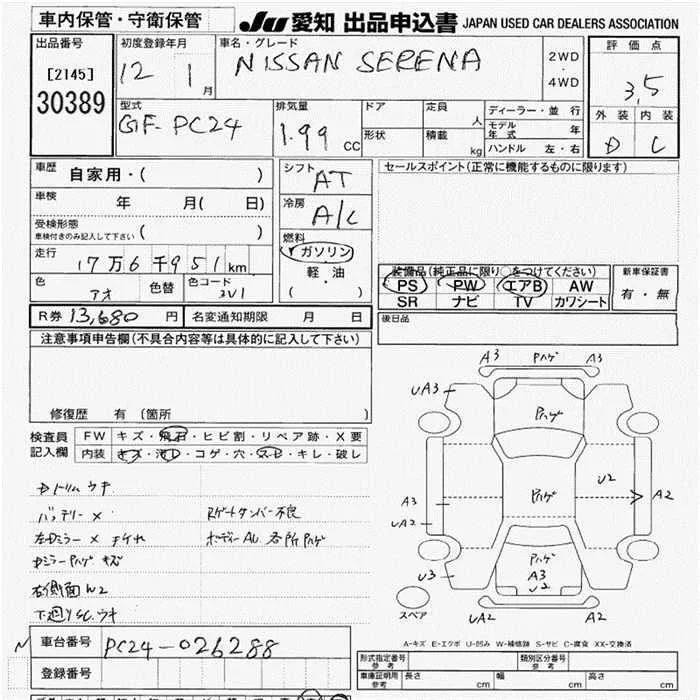 車内保管・守衛保管
JU 愛知 出品申込書 JAPAN USED CAR DEALERS ASSOCIATION
出品番号
[2145]
30389
初度登録年月
12 1 月
車名・グレード
NISSAN SERENA
2WD
・
4WD
評価点
3,5
外装 内装
D C
型式
GF-PC24
排気量
1.99 CC
ドア
形状
定員 人
積載 kg
ディーラー・並行
モデル年式 年
ハンドル 左・右
車歴 自家用・( )
車検 年 月( 日)
受検形態
車検付きのみ記入して下さい ( )
走行 17万6千951km
色 アオ 色替 色コード 2V1
シフト AT
冷房 A/C
燃料
ガソリン
軽・油
( )
セールスポイント(正常に機能するものに限ります)
装備品(純正品に限り○をつけてください)
PS PW エアB AW
SR ナビ TV カワシート
新車保証書
有・無
後日品
R券 13,680 円 名変通知期限 月 日
注意事項申告欄(不具合内容等は具体的に記入して下さい)
修復歴 有 (箇所 )
検査員記入欄
FW キズ・飛石・ヒビ割・リペア跡・X要
内装 キズ・汚レ・コゲ・穴・スレ・キレ・破レ
Dトリムウキ
バッテリー×
Rゲートダンパー不良
左Dミラー×
ボディーAU 各所Pハゲ
DミラーPハゲ キズ
右側面W2
下廻りSC.ウキ
A3 Pハゲ A3
UA3
Pハゲ
U2
A3
Pハゲ
A2
UA2
Pハゲ
A3
U2
U3
UA2 A2
スペア
A-キズ E-エクボ U-凹み W-補修跡 S-サビ C-腐食 XX-交換済
車台番号 PC24-026288
登録番号
形式指定番号
参考
類別区分番号
参考
車庫証明用
参考
長さ cm 幅 cm 高さ cm